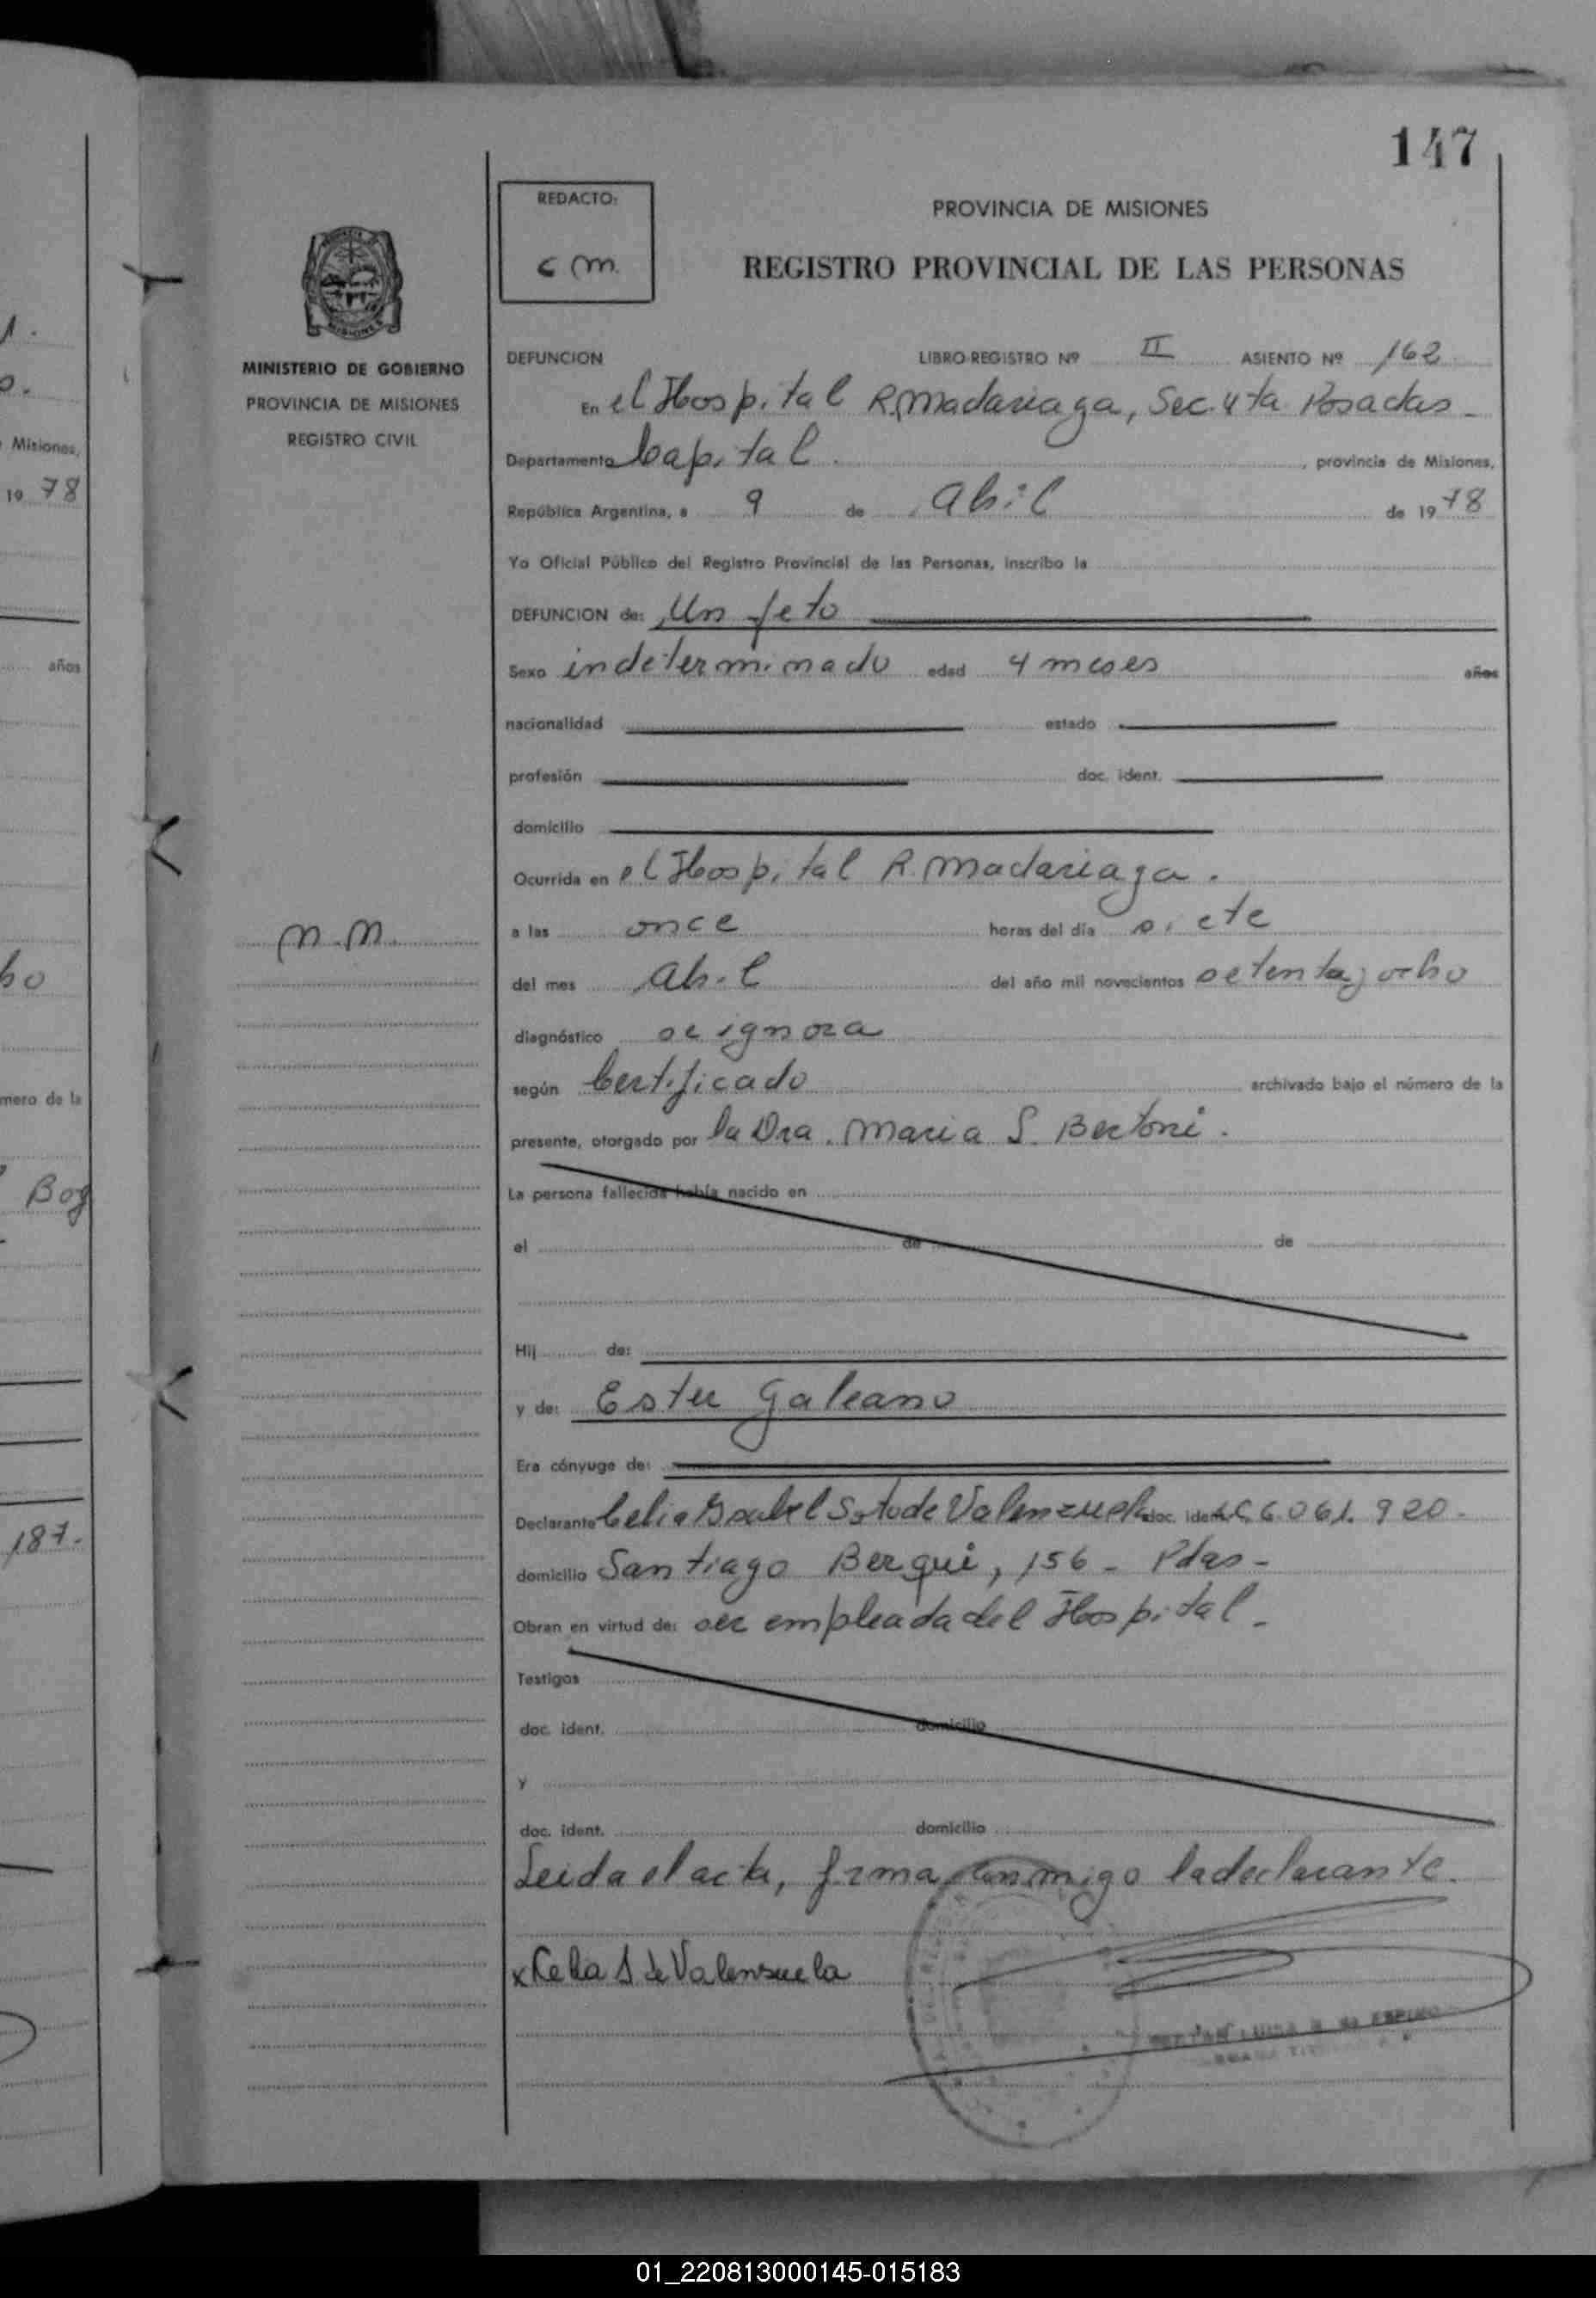 147
REDACTO:
C M.
PROVINCIA DE MISIONES
REGISTRO PROVINCIAL DE LAS PERSONAS
MINISTERIO DE GOBIERNO
PROVINCIA DE MISIONES
REGISTRO CIVIL
DEFUNCION LIBRO-REGISTRO Nº II ASIENTO Nº 162
En el Hospital R. Madariaga, Sec. 4ta Posadas -
Departamento Capital. , provincia de Misiones,
República Argentina, a 9 de Abril de 1978
Yo Oficial Público del Registro Provincial de las Personas, inscribo la
DEFUNCION de: Un feto
Sexo indeterminado edad 4 meses años
nacionalidad estado
profesión doc. ident.
domicilio
Ocurrida en el Hospital R. Madariaga.
N.N.
a las once horas del día siete
del mes Abril del año mil novecientos setenta y ocho
diagnóstico se ignora
según Certificado archivado bajo el número de la
presente, otorgado por la Dra. Maria S. Bertoni.
La persona fallecida había nacido en
el de de
Hij de:
y de: Ester Galeano
Era cónyuge de:
Declarante Celia Isabel Soto de Valenzuela doc. ident. LC 6.061.920.
domicilio Santiago Berqui, 156 - Pdas-
Obran en virtud de: ser empleada del Hospital -
Testigos
doc. ident. domicilio
y
doc. ident. domicilio
Leida el acta, firma conmigo la declarante.
x Celia S de Valensuela
1.
o.
Misiones,
19 78
años
ho
mero de la
Bog
187.
01_220813000145-015183